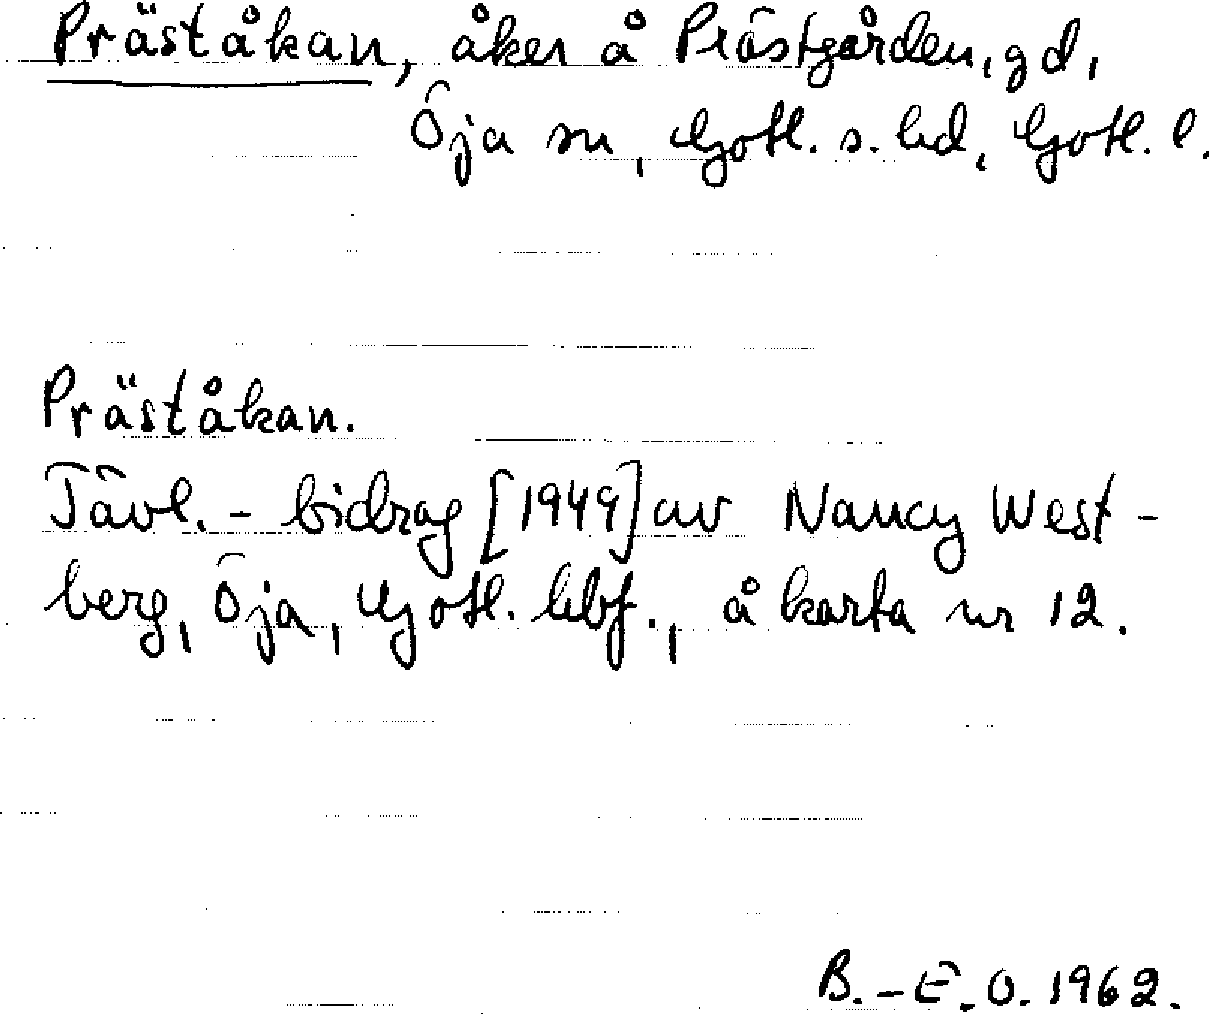 Präståkan, åker å Prästgården, gd,
Öja sn, Gotl. s. hd, Gotl. l.
Präståkan.
Tävl.-bidrag [1949] av Nancy West-
berg, Öja, Gotl. hbf., å karta nr 12.
B.-E. O. 1962.